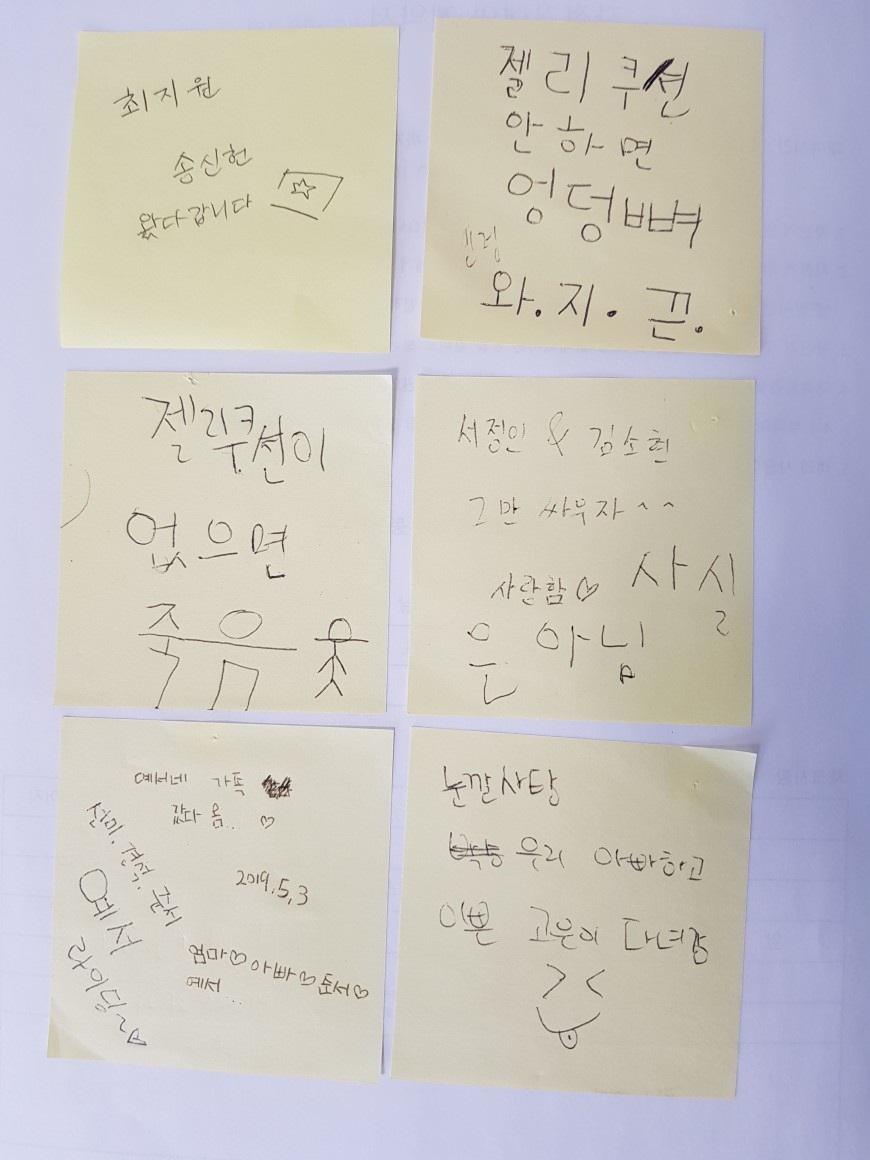 최지원
송신헌
왔다갑니다
젤리쿠션
안하면
엉덩뼈
와.지.끈.
젤리쿠션이
없으면
죽음
서정인 & 김소현
그만 싸우자^^
사랑함♡
사실
은 아님
예서네 가족
갔다 옴... ♡
2019.5.3
예서
라이딩
엄마♡아빠♡준서♡
예서...
눈깔사탕
우리 아빠하고
이쁜 고은이 다녀감